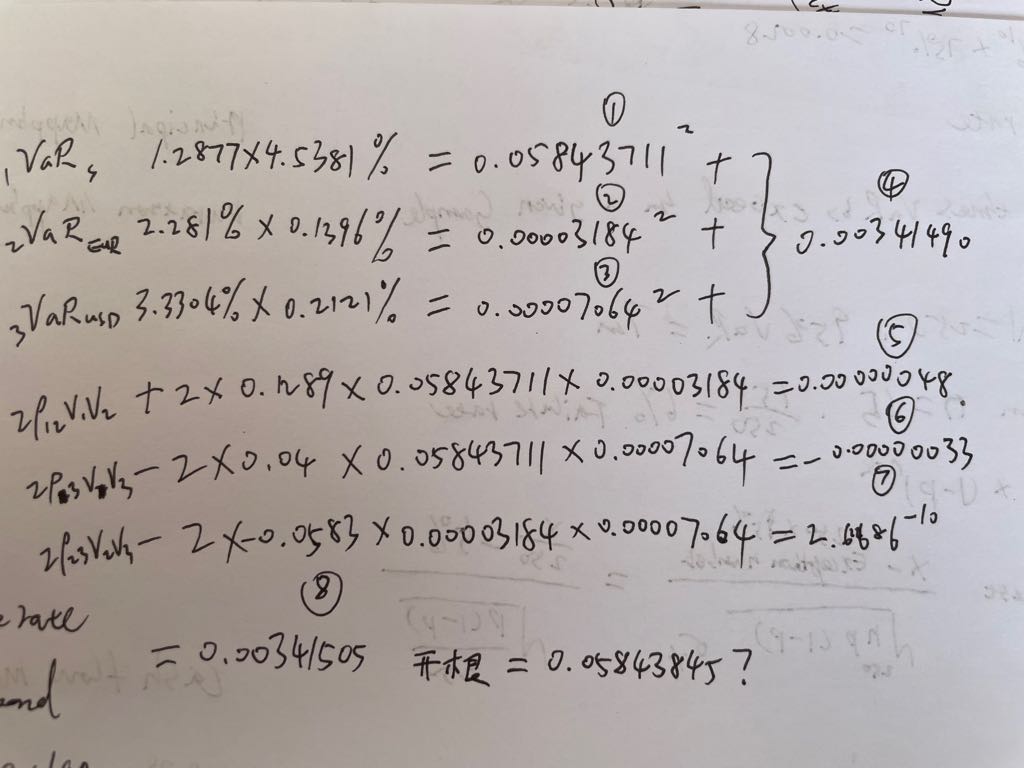 ①
₁VaR$ 1.2877×4.5381% = 0.05843711² +
②
④
₂VaR EUR 2.281% × 0.1396% = 0.00003184² + } 0.00341490
③
₃VaR USD 3.3304% × 0.2121% = 0.00007064² +
⑤
2ρ₁₂V₁V₂ + 2 × 0.1289 × 0.05843711 × 0.00003184 = 0.00000048
⑥
− 2 × 0.04 × 0.05843711 × 0.00007064 = −0.00000033
⑦
2ρ₂₃V₂V₃ − 2 × −0.0583 × 0.00003184 × 0.00007064 =
⑧
rate
= 0.00341505 开根 = 0.05843845?